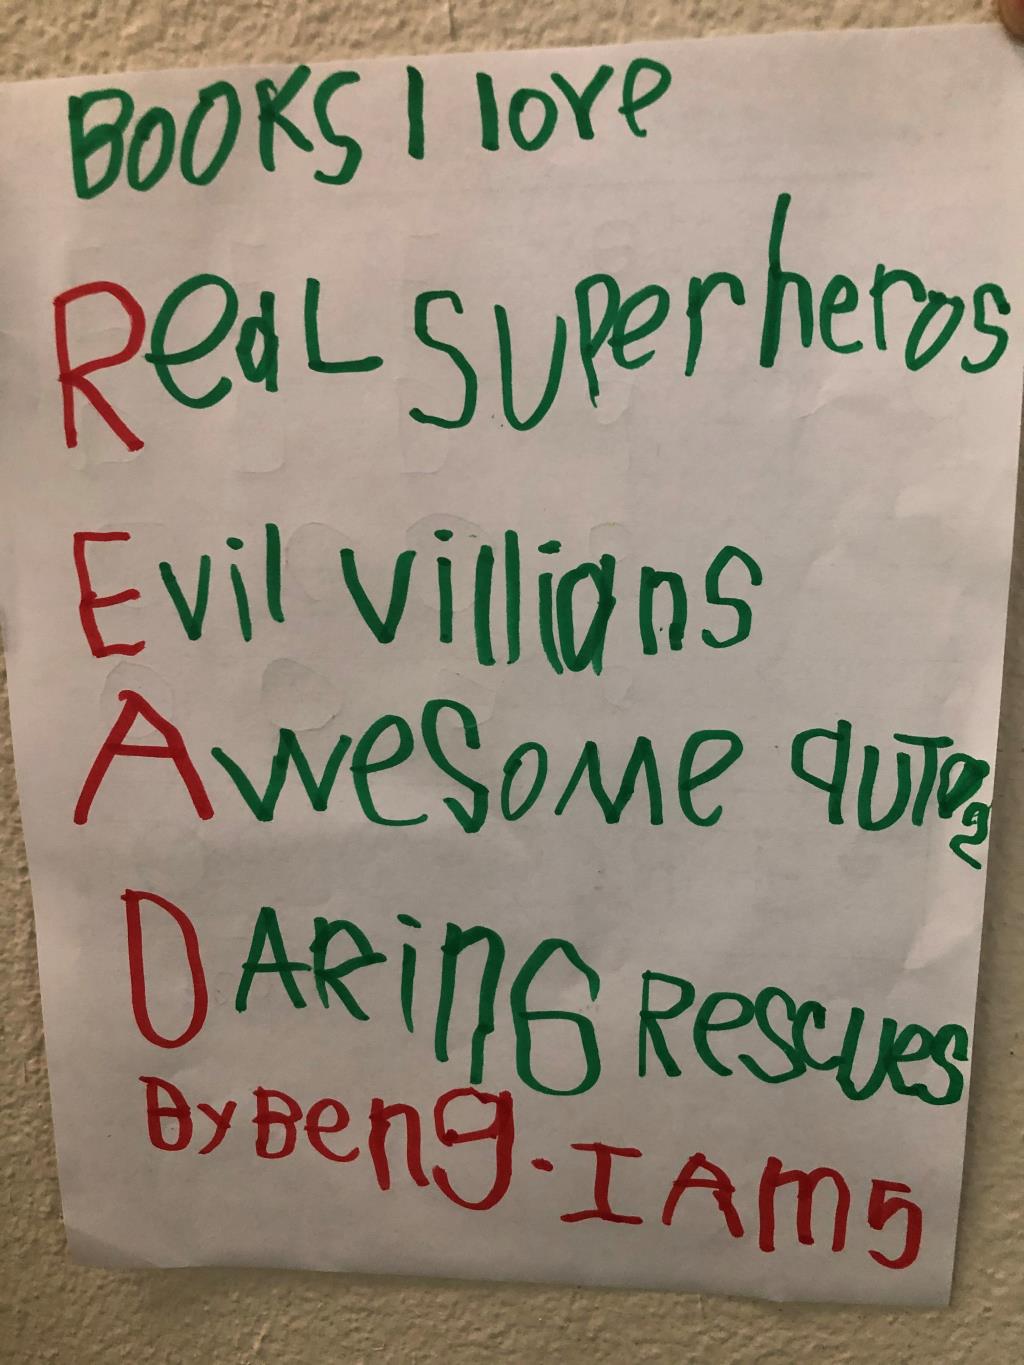 BOOKS I love
ReaL SUPerheros
Evil villians
AwesoMe autos
DARinG Rescues
By Ben g. I AM 5